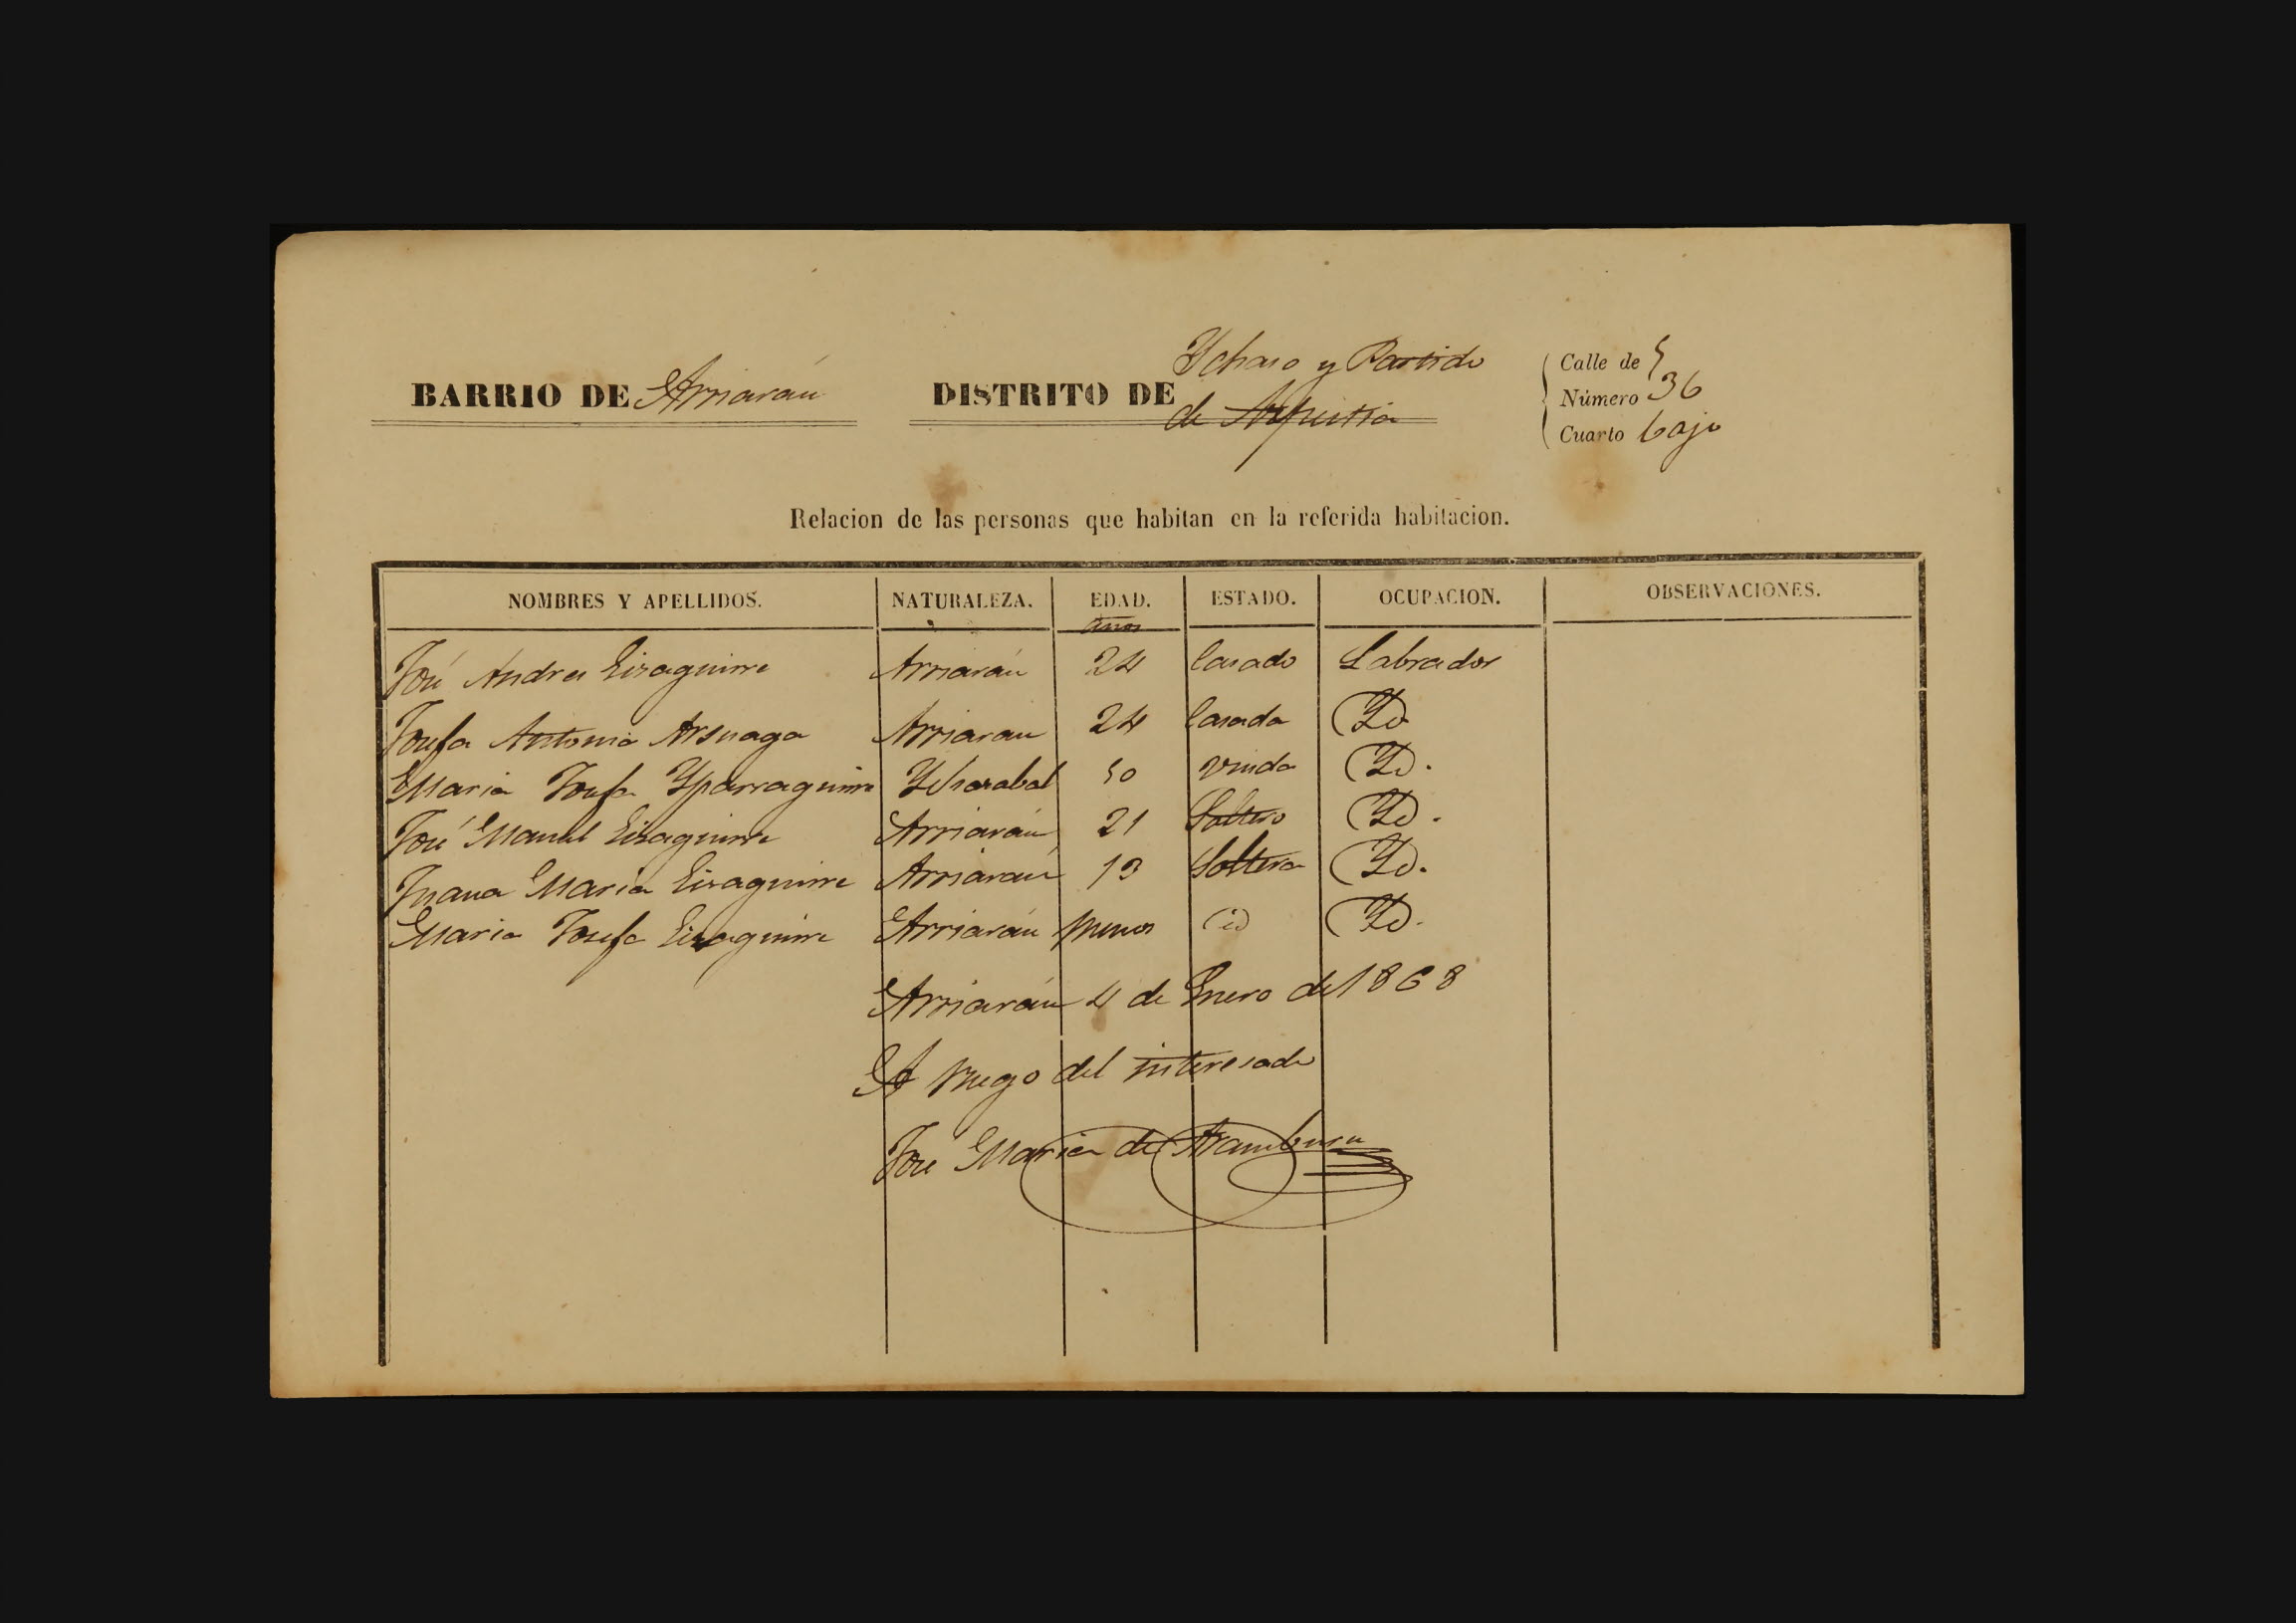 BARRIO DE Arriarán
DISTRITO DE Ychaso y Partido
de Azpeitia
Calle de
Número 36
Cuarto bajo
Relacion de las personas que habitan en la referida habitacion.
NOMBRES Y APELLIDOS. NATURALEZA. EDAD. ESTADO. OCUPACION. OBSERVACIONES.
años
José Andres Eizaguirre Arriarán 24 Casado Labrador
Josefa Antonia Arsuaga Arriaran 24 Casada Yd
Maria Josefa Yparraguirre 50 viuda Yd.
José Manuel Eizaguirre Arriarán 21 Soltero Yd.
Juana Maria Eizaguirre Arriarán 13 Soltera Yd.
Maria Josefa Eizaguirre Arriarán id Yd.
Arriarán 4 de Enero de 1868
A ruego del interesado
José Maria de Aramburu